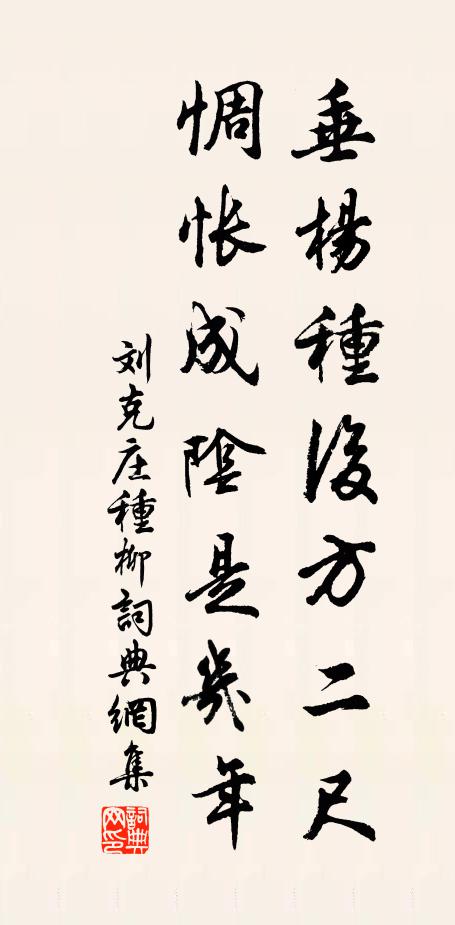 垂楊種後方二尺
惆悵成陰是幾年
刘克庄種柳詞典網集
詞典網印